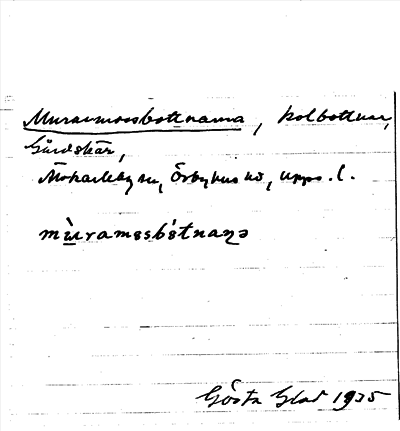 Murarmossbottnarna, kolbottnar,
Gårdskär,
Älvkarleby sn, Örbyhus hd, Upps. l.
mùramɷsbɷ́tnaɳə
Gösta Glad 1935